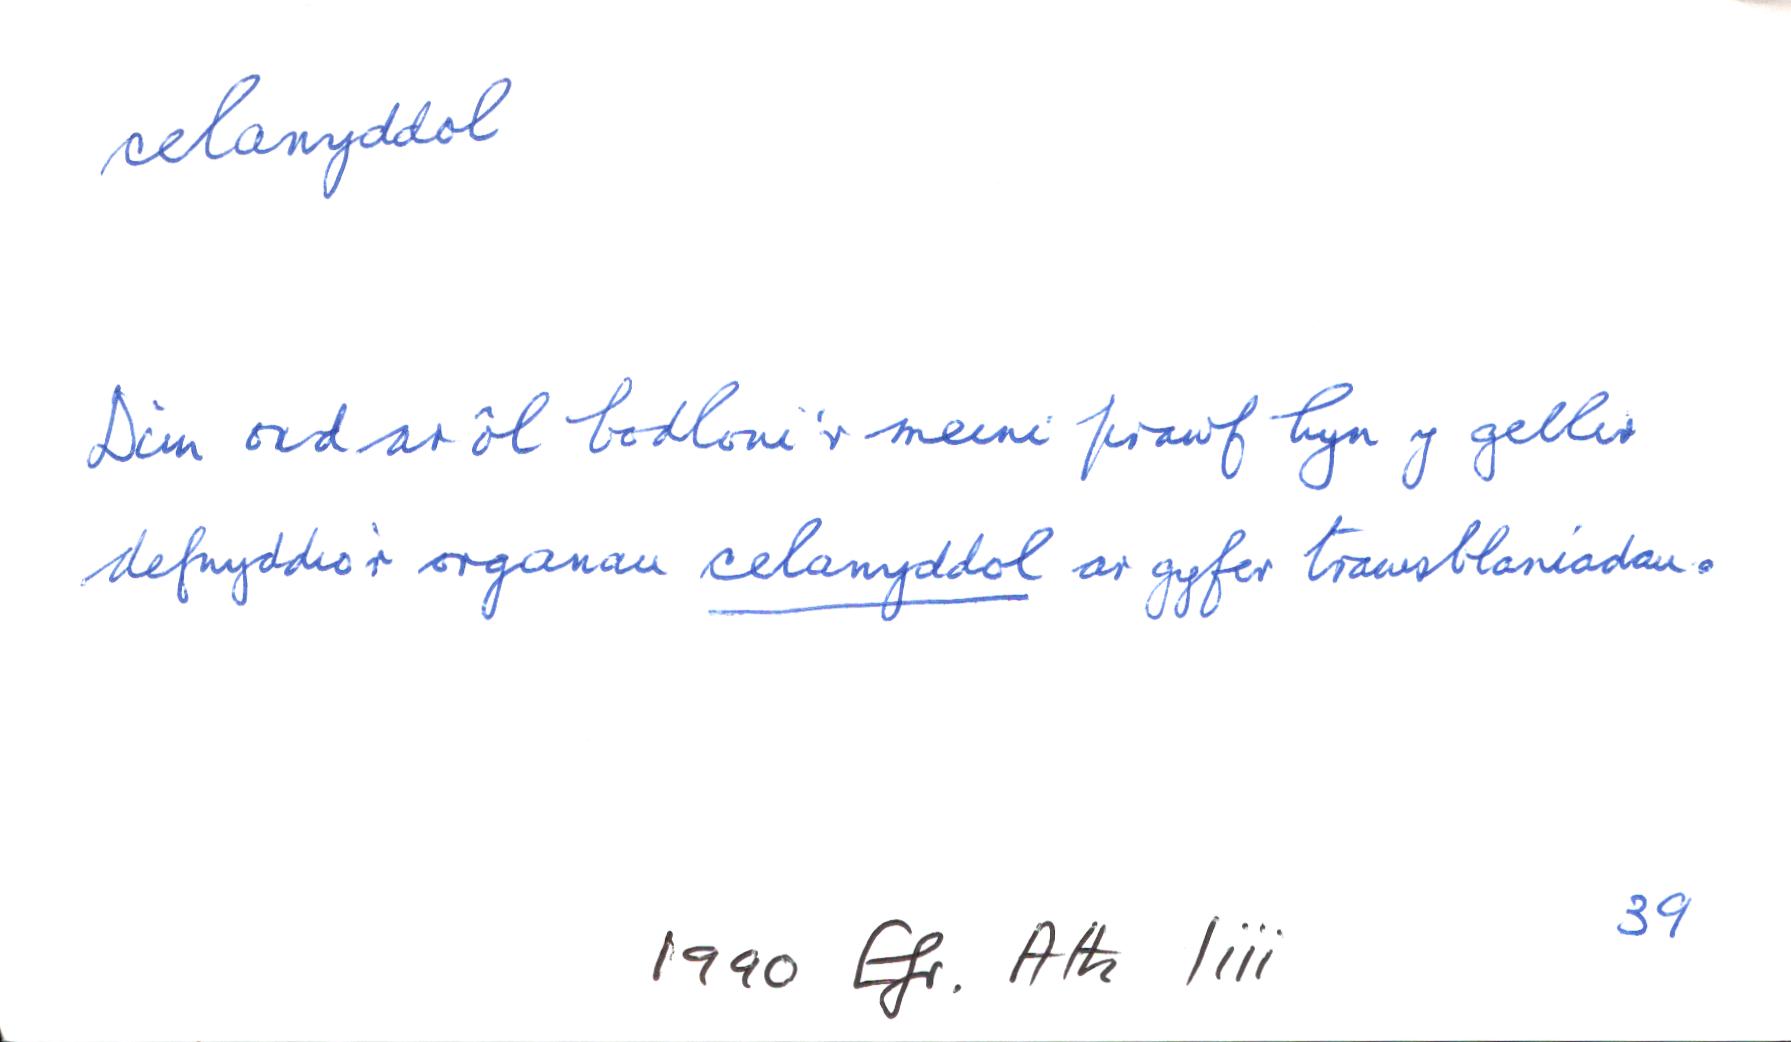 celanyddol
Dim ond ar ôl bodloni'r meini prawf hyn y gellir
defnyddio'r organau celanyddol ar gyfer trawsblaniadau.
39
1990 Efr. Ath liii